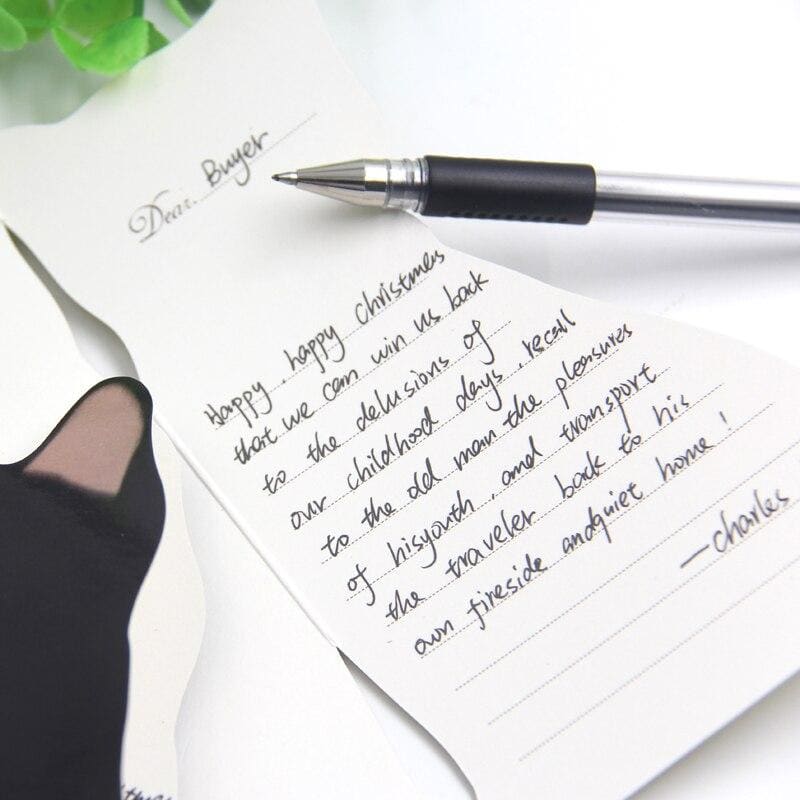 Dear Buyer
Happy, happy christmas
that we can win us back
to the delusions of
our childhood days, recall
to the old man the pleasures
of hisyouth, and transport
the traveler back to his
own fireside andquiet home!
—charles